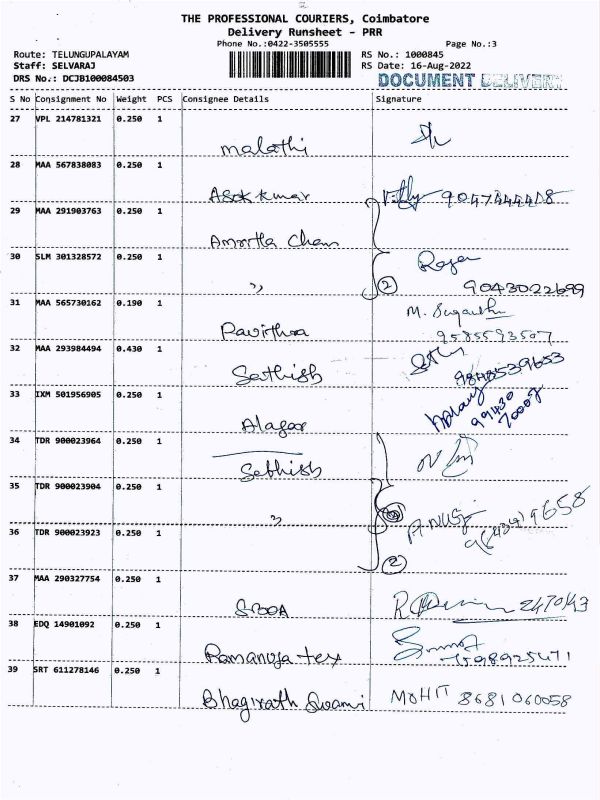 THE PROFESSIONAL COURIERS, Coimbatore
Delivery Runsheet - PRR
Phone No.:0422-3505555 Page No.:3
Route: TELUNGUPALAYAM RS No.: 1000845
Staff: SELVARAJ RS Date: 16-Aug-2022
DRS No.: DCJB100084503 DOCUMENT DELIVERY
S No Consignment No Weight PCS Consignee Details Signature
27 VPL 214781321 0.250 1
malathi
28 MAA 567838083 0.250 1
Asok kumar
29 MAA 291903763 0.250 1
30 SLM 301328572 0.250 1
" 2 9043022699
31 MAA 565730162 0.190 1
Pavithra 9585593507
32 MAA 293984494 0.430 1
Sathish 9848539653
33 IXM 501956905 0.250 1
Alagar
34 TDR 900023964 0.250 1
Sathish
35 TDR 900023904 0.250 1
"
36 TDR 900023923 0.250 1
2
37 MAA 290327754 0.250 1
38 EDQ 14901092 0.250 1
Ramanuja tex
39 SRT 611278146 0.250 1
Bhagirath Swami MOHIT 8681060058